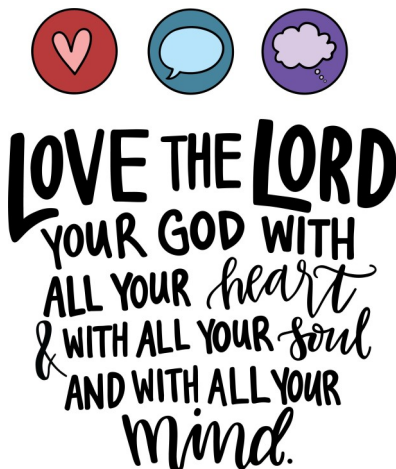 LOVE THE LORD
YOUR GOD WITH
ALL YOUR heart
& WITH ALL YOUR soul
AND WITH ALL YOUR
mind.